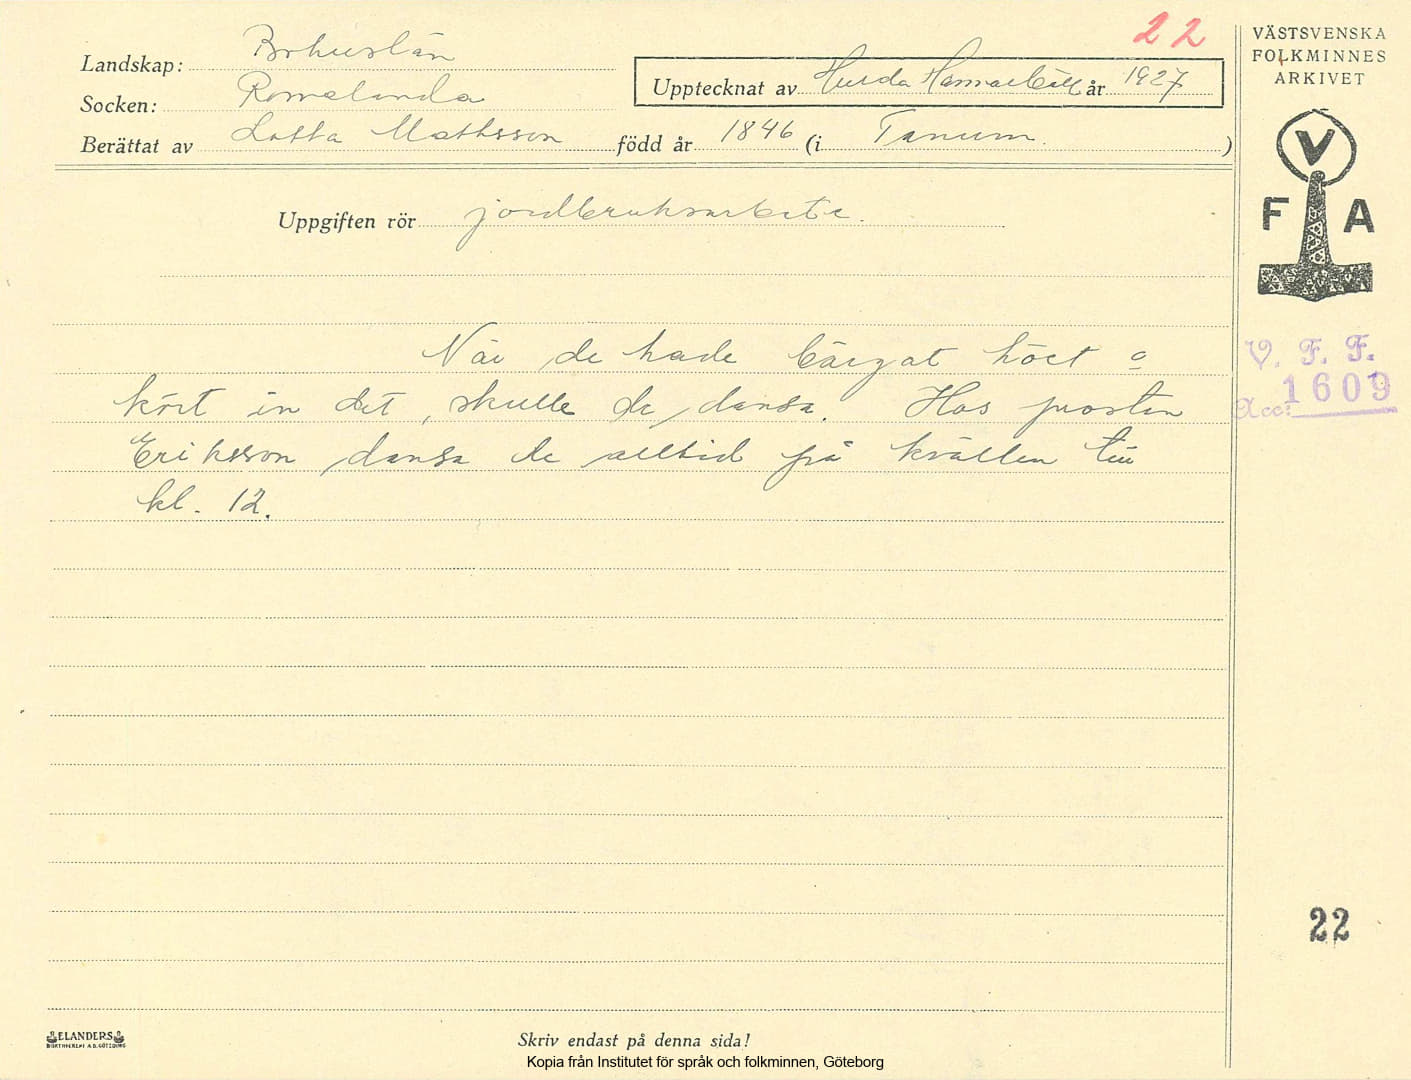 22
Landskap: Bohuslän
Socken: Romelanda
Upptecknat av Hulda Hammarbäck år 1927
Berättat av Lotta Mattsson född år 1846 (i Tanum. )
VÄSTSVENSKA
FOLKMINNES
ARKIVET
V
F A
Uppgiften rör jordbruksarbete.
När de hade bärgat höet o
kört in det, skulle de dansa. Hos prosten
Eriksson dansa de alltid på kvällen till
kl. 12.
V. F. F.
Acc: 1609
22
ELANDERS
BOKTRYCKERI A.B. GÖTEBORG
Skriv endast på denna sida!
Kopia från Institutet för språk och folkminnen, Göteborg